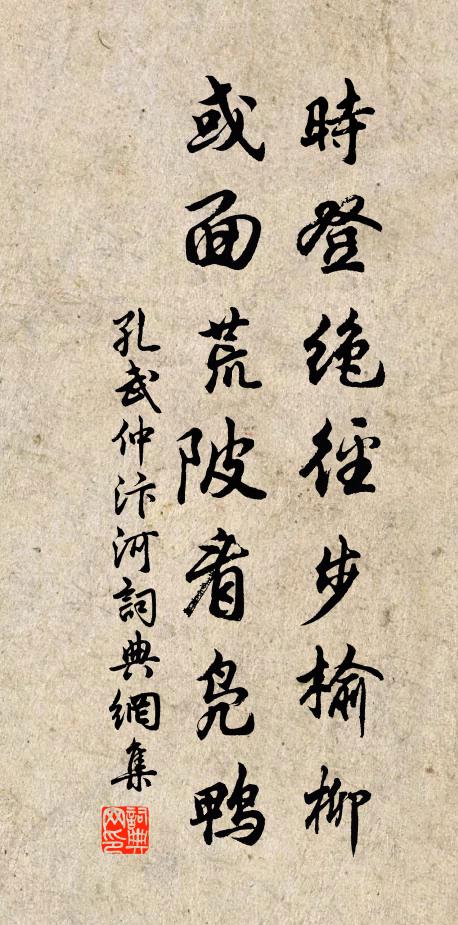 時登絶徑步榆柳
或面荒陂看鳧鴨
孔武仲汴河詞典網集
詞典网印